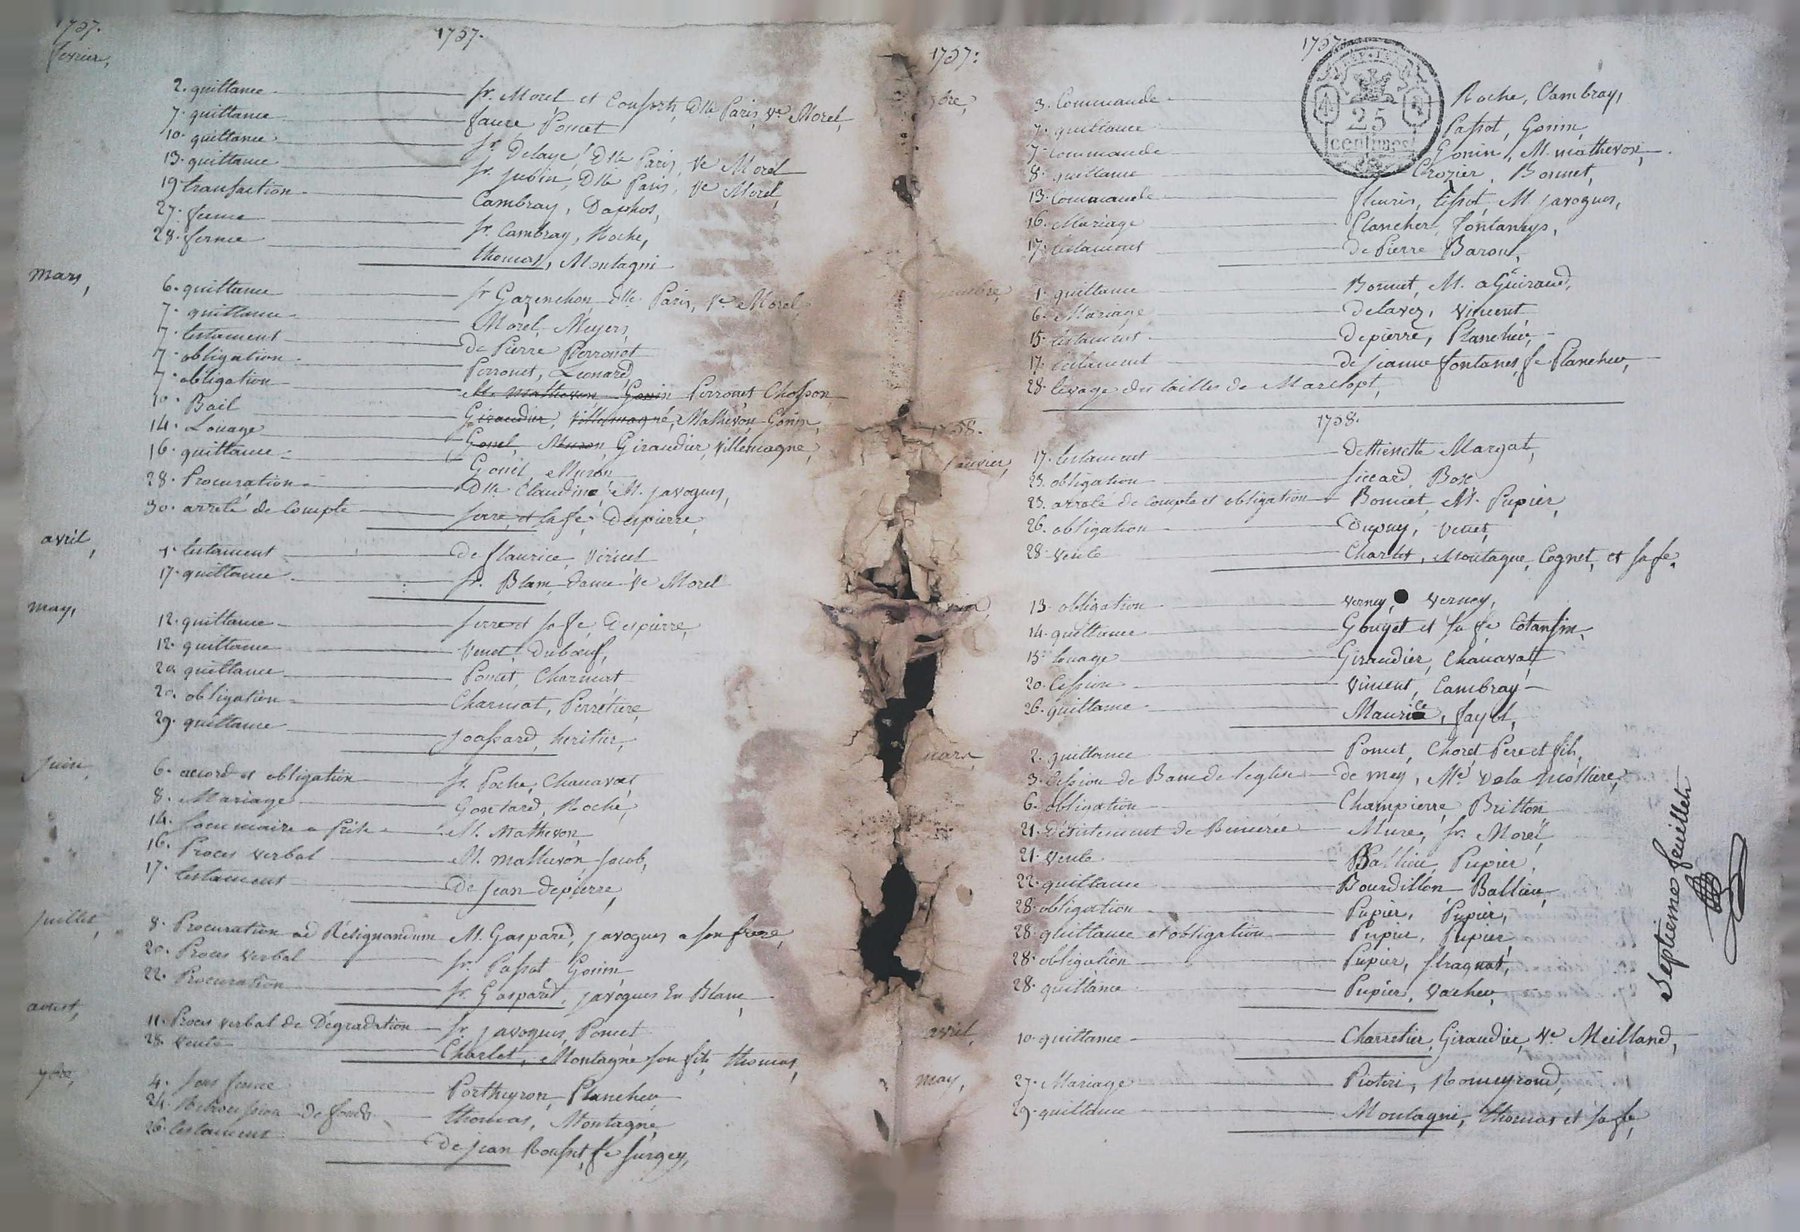 1757. 1757.
fevrier,
2. quittance Sr. Morel et Consorts, Dlle Paris, ve Morel,
7. quittance faure Poncet
10. quittance Sr Delaye, Dlle Paris, ve Morel
13. quittance Sr. Jubin, Dlle Paris, ve Morel,
19. transaction Cambray, Daphos,
27. ferme Sr. Cambray, Roche,
28. ferme thomas, Montagni
mars,
6. quittance Sr Gazenchon Dlle Paris, ve Morel
7. quittance Morel, Meyer,
7. testament de Pierre Perronet
7. obligation Perronet, Leonard,
7. obligation M. Mathevon Gonin Perronet Chosson
10. Bail Giraudier, villemagne, Mathevon Gonin,
14. Louage Gonel, Muron, Giraudier, villemagne,
16. quittance Gonel, Muron
28. Procuration Dlle Claudine, M. javogues,
30. arreté de Compte serre, et sa fe, Despierre
avril,
1. testament de flaurice, vincel
17. quittance Sr. Blam, dame ve Morel
may,
12. quittance serre et sa fe, Despierre,
12. quittance venet, duboeuf,
20. quittance Poncet, Charmat
20. obligation Charmat, Perretiere,
29. quittance joassard, heritier,
Juin,
6. accord et obligation Sr. Poche, Chauavas
8. Mariage Gontard, Roche,
14. M. Mathevon,
16. Proces verbal M. mathevon, Jacob,
17. testament De Jean depierre,
Juillet,
8. Procuration ad Resignandum M. Gaspard, javogues a son frere,
20. Proces verbal Sr. Passot Gonin
22. Procuration Sr. Gaspard, javogues En Blanc
aoust,
11. Proces verbal de Dégradation Sr. javogues, Poncet
28. vente Charlet, Montagne son fils, thomas,
7bre,
4. sous ferme Portheyron, Plancheu,
24. Retrocession de fonds thomas, Montagne,
26. testament de jean Rousset, fe Surgey,
1757. 1757.
bre,
3. Commande Roche, Cambray,
7. quittance Passot, Gonin,
7. commande Gonin, M. mathevon,
8. quittance Crozier, Bonnet,
13. Commande fleuris, tissot, M. javogues,
16. Mariage Plancher, fontaneys,
17. testament de Pierre Baron,
25
centimes
1. quittance Bonnet, M. aGuiraud,
6. Mariage Delavez, vincent,
15. testament depierre, Plancheu,
17. testament de jeanne fontanes, fe Plancheu,
28. levage des tailles de Marclopt,
1758. 1758.
janvier,
17. testament d'ettiennette Margat,
23. obligation Siccard, Bose
23. arreté de compte et obligation Bonnet, M. Pupier,
26. obligation Dupuy, venet,
28. vente Charlet, Montagne, Cognet, et sa fe.
13. obligation verney, verney,
14. quittance Gouyet et sa fe Cotansin,
15. louage Giraudier, Chauavat
20. Cession vincent, Cambray
26. quittance Maurice, fayet,
mars,
2. quittance Poncet, Choret Pere et fils,
3. Cession de Banc de l'eglise de mey, Me. De la Mollière,
6. obligation Champierre, Britton
21. Désistement de Benierie Mure, Sr. Morel
21. vente Ballieu, Pupier,
22. quittance Bourdillon, Ballieu,
28. obligation Pupier, Pupier,
28. quittance et obligation Pupier, Pupier,
28. obligation Pupier, Stragnat,
28. quittance Pupier, vacheu,
avril,
10. quittance Charretier, Giraudier, ve Meilland,
may,
27. Mariage Piotiri, Romeyrond,
29. quittance Montagni, thomas et sa fe,
Septieme feuillet